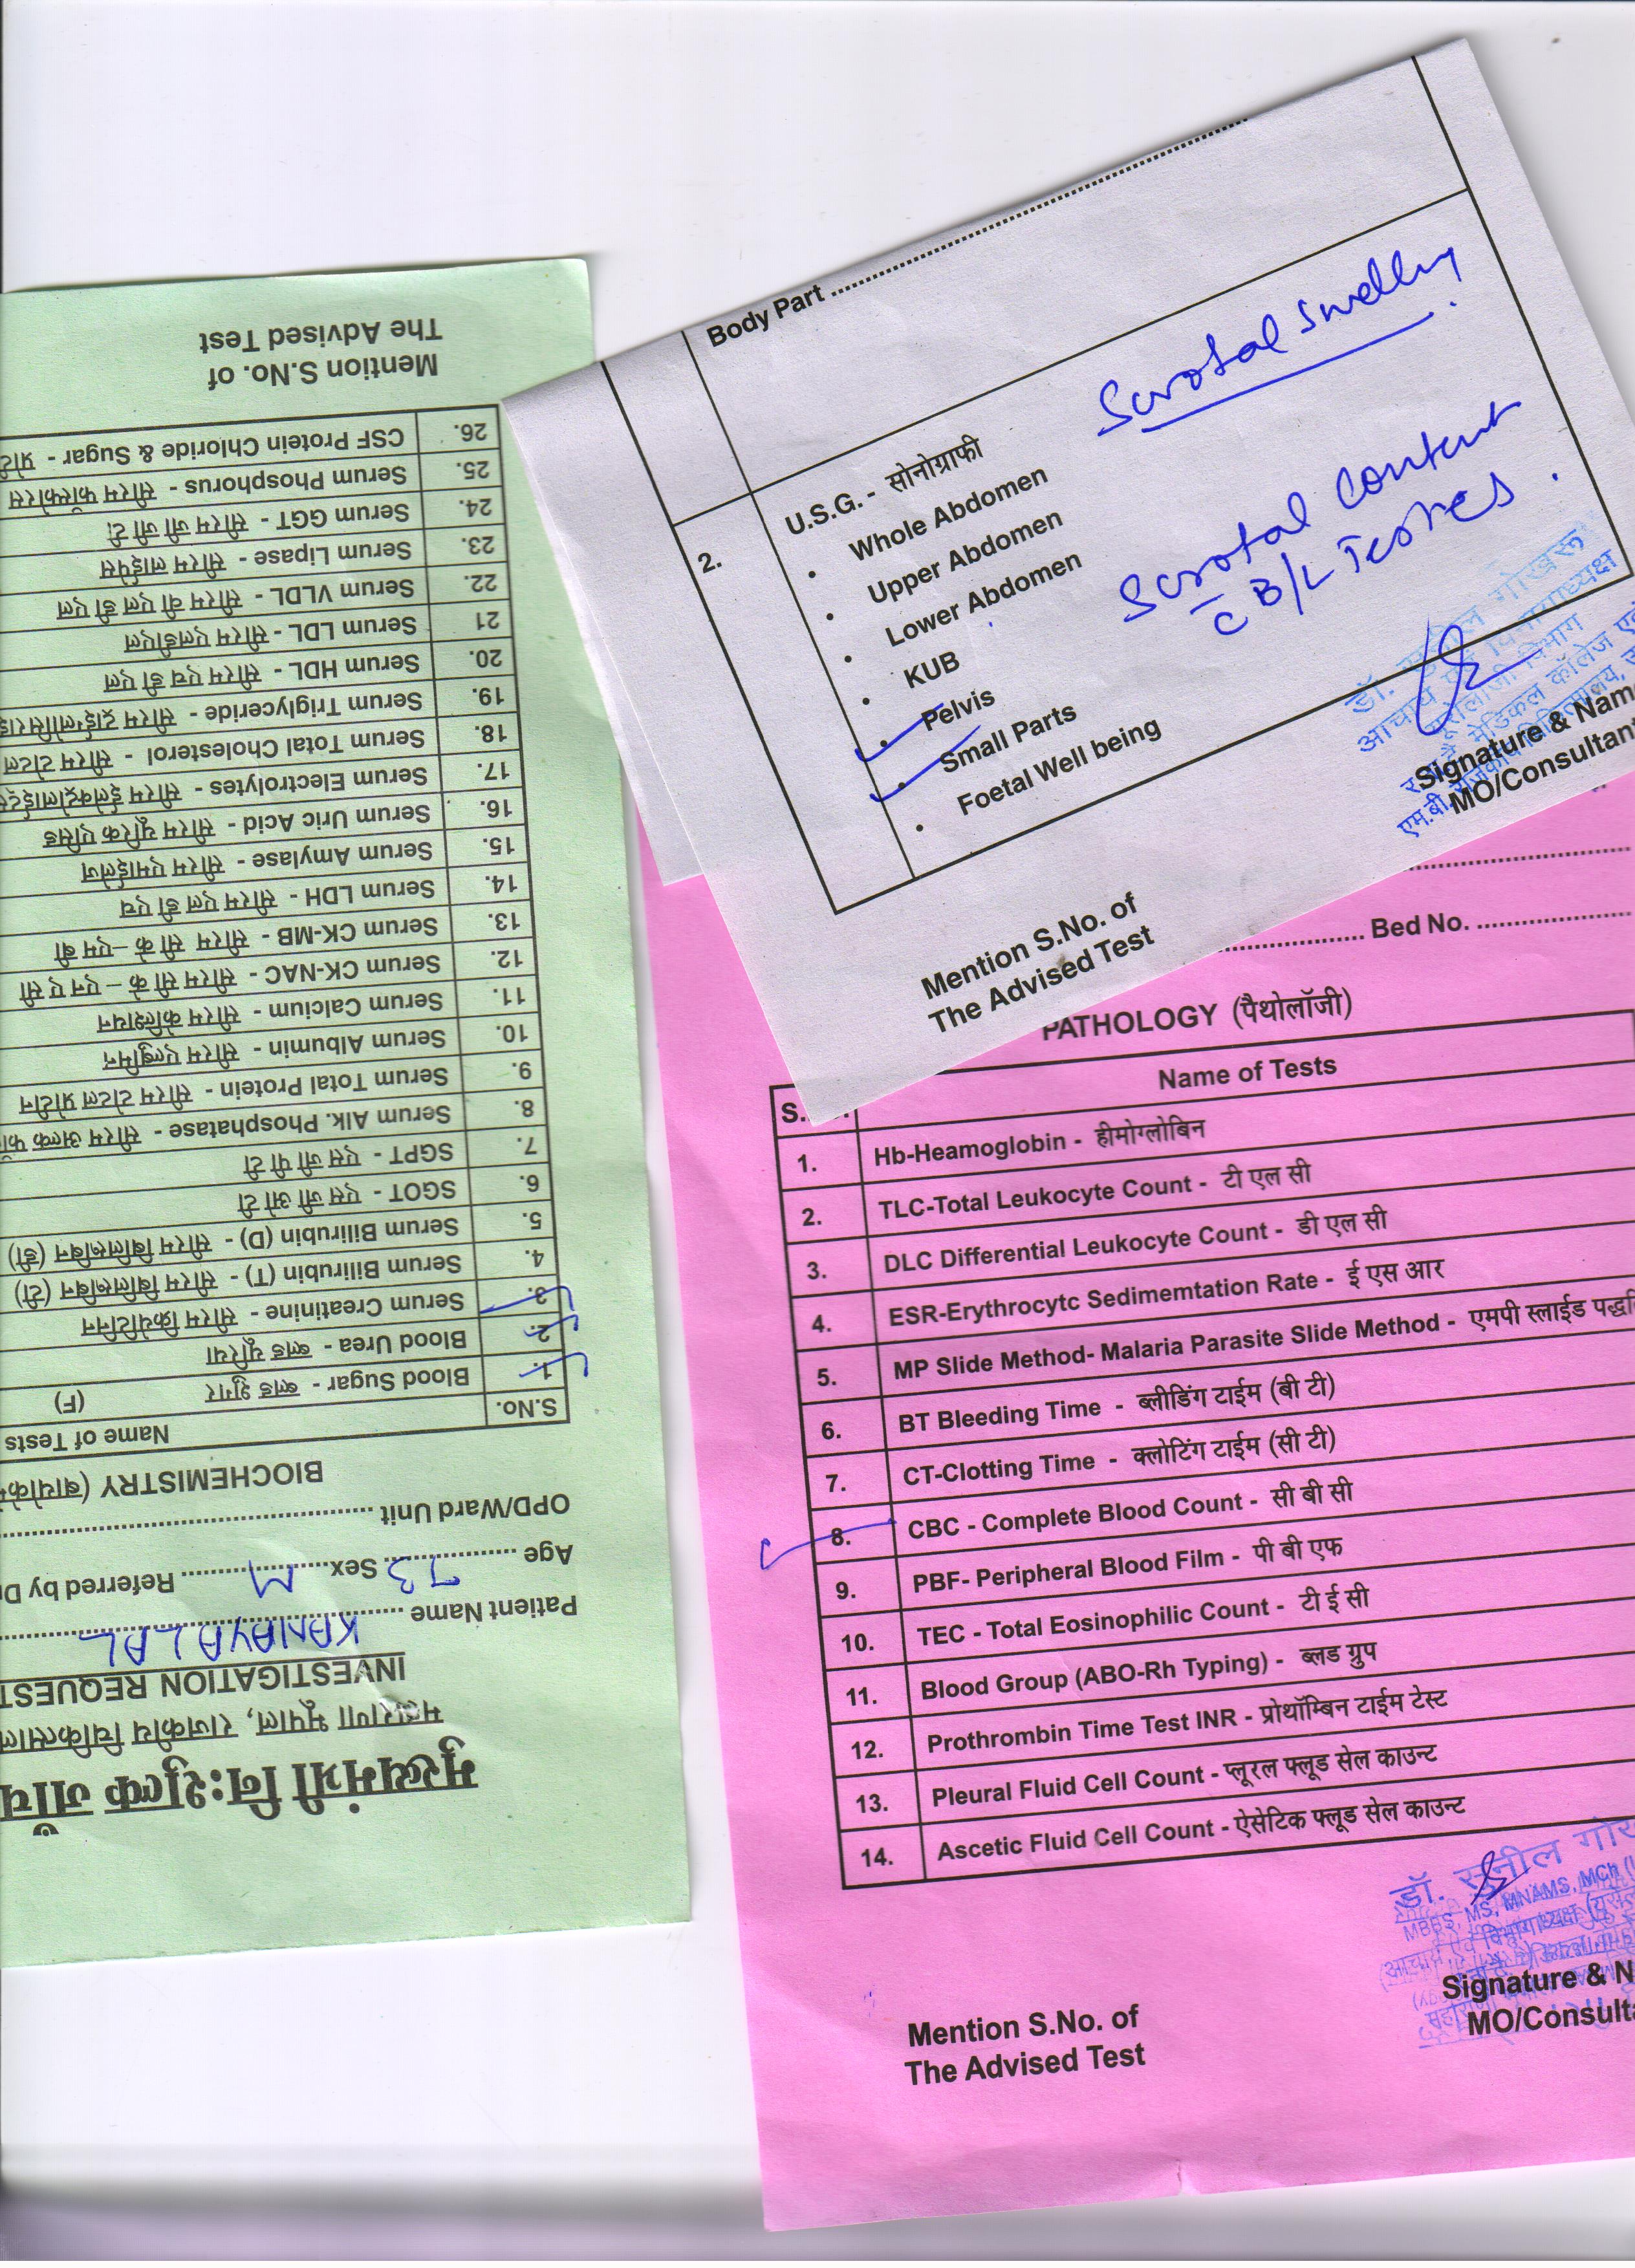 Body Part
Scrotal swelling
2.
U.S.G. - सोनोग्राफी
• Whole Abdomen
• Upper Abdomen
• Lower Abdomen
• KUB
• Pelvis
• Small Parts
• Foetal Well being
Scrotal content
c B/L Testes.
Signature & Nam
MO/Consultant
Mention S.No. of
The Advised Test
Bed No.
PATHOLOGY (पैथोलॉजी)
S. Name of Tests
1. Hb-Heamoglobin - हीमोग्लोबिन
2. TLC-Total Leukocyte Count - टी एल सी
3. DLC Differential Leukocyte Count - डी एल सी
4. ESR-Erythrocytc Sedimemtation Rate - ई एस आर
5. MP Slide Method- Malaria Parasite Slide Method - एमपी स्लाईड
6. BT Bleeding Time - ब्लीडिंग टाईम (बी टी)
7. CT-Clotting Time - क्लोटिंग टाईम (सी टी)
8. CBC - Complete Blood Count - सी बी सी
9. PBF- Peripheral Blood Film - पी बी एफ
10. TEC - Total Eosinophilic Count - टी ई सी
11. Blood Group (ABO-Rh Typing) - ब्लड ग्रुप
12. Prothrombin Time Test INR - प्रोथॉम्बिन टाईम टेस्ट
13. Pleural Fluid Cell Count - प्लूरल फ्लूड सेल काउन्ट
14. Ascetic Fluid Cell Count - ऐसेटिक फ्लूड सेल काउन्ट
डॉ. सुनील
MBBS, MS, MNAMS, MCh
Signature & N
MO/Consulta
Mention S.No. of
The Advised Test
मुख्यमंत्री निःशुल्क जाँच
महाराणा भूपाल, राजकीय चिकित्साल
INVESTIGATION REQUEST
Patient Name KANAYALAL
Age 73 Sex M Referred by Dr
OPD/Ward Unit
BIOCHEMISTRY
S.No. Name of Tests
1. Blood Sugar - ब्लड शुगर (F)
2. Blood Urea - ब्लड यूरिया
3. Serum Creatinine - सीरम क्रियेटिनिन
4. Serum Bilirubin (T) - सीरम बिलिरूबिन (टी)
5. Serum Bilirubin (D) - सीरम बिलिरूबिन (डी)
6. SGOT - एस जी ओ टी
7. SGPT - एस जी पी टी
8. Serum Alk. Phosphatase - सीरम अल्क
9. Serum Total Protein - सीरम टोटल प्रोटीन
10. Serum Albumin - सीरम एल्बुमिन
11. Serum Calcium - सीरम केल्शियन
12. Serum CK-NAC - सीरम सी के – एन ए सी
13. Serum CK-MB - सीरम सी के – एम बी
14. Serum LDH - सीरम एल डी एच
15. Serum Amylase - सीरम एमाईलेज
16. Serum Uric Acid - सीरम यूरिक एसिड
17. Serum Electrolytes - सीरम
18. Serum Total Cholesterol - सीरम टोटल
19. Serum Triglyceride - सीरम
20. Serum HDL - सीरम एच डी एल
21 Serum LDL - सीरम एलडीएल
22. Serum VLDL - सीरम वी एल डी एल
23. Serum Lipase - सीरम लाईपेस
24. Serum GGT - सीरम जी जी टी
25. Serum Phosphorus - सीरम फॉस्फोरस
26. CSF Protein Chloride & Sugar -
Mention S.No. of
The Advised Test